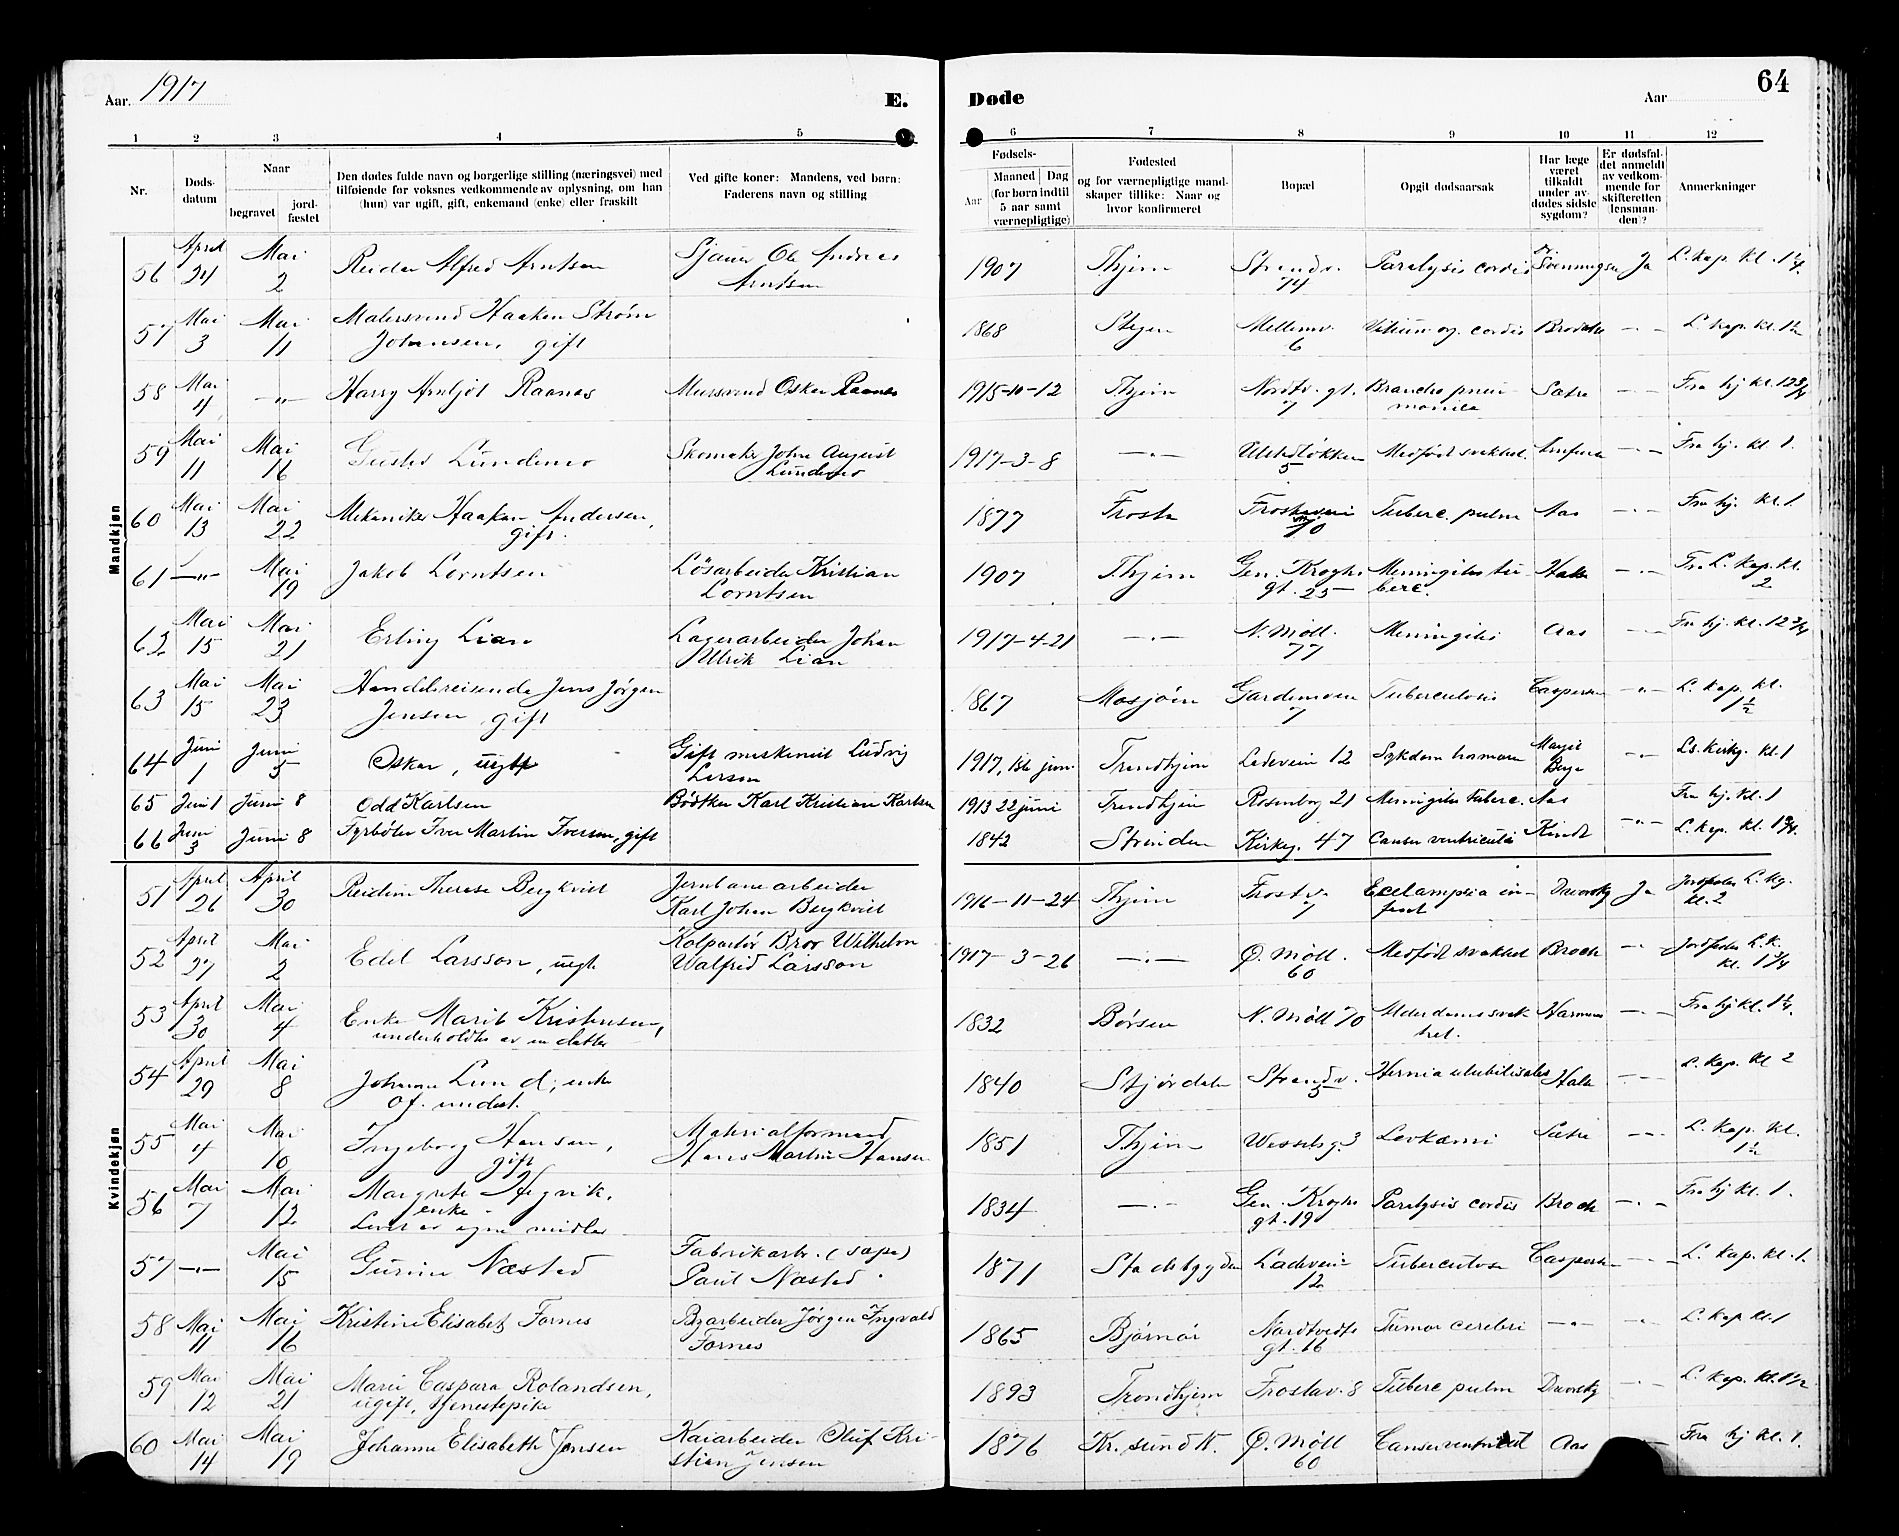 Aar. 1917
E.
Døde
Aar
64
1 2 3 4 5 6 7 8 9 10 11 12
Nr.
Døds-
datum
Naar
begravet
jord-
fæstet
Den dødes fulde navn og borgerlige stilling (næringsvei) med
tilføiende for voksnes vedkommende av oplysning, om han
(hun) var ugift, gift, enkemand (enke) eller fraskilt
Ved gifte koner: Mandens, ved børn:
Faderens navn og stilling
Fødsels-
Aar
Maaned Dag
(for børn indtil
5 aar samt
værnepligtige)
Fødested
og for værnepligtige mand-
skaper tillike: Naar og
hvor konfirmeret
Bopæl
Opgit dødsaarsak
Har læge
været
tilkaldt
under av-
dødes sidste
sygdom?
Er dødsfal-
det anmeldt
av vedkom-
mende for
skifteretten
(lensman-
den)?
Anmerkninger
Mandkjøn
56 April 24 Mai 2 Reidar Alfred Arntsen Sjauer Ole Andreas Arntsen 1907 Thjem Strandv. 74 Paralysis cordis Svenningsen Ja L. kap. kl. 1 1/4
57 Mai 3 Mai 11 Malersvend Haaken Strøm Johansen, gift 1868 Mellemv. 6 Vitium og. cordis L. kap. kl. 1 1/2
58 Mai 4 —"— Harry Arnljot Raanes Mursvend Oskar Raanes 1915-10-12 Thjem Nordtv. gt. 7 Broncho pneu-monica Sætre —"— Fra hj kl. 12 3/4
59 Mai 11 Mai 16 Gustav Lundemo Skomaker John August Lundemo 1917-3-8 —"— 5 Medfødt svakhet —"— Fra hj. kl 1.
60 Mai 13 Mai 22 Mekaniker Haakon Andersen, gift. 1877 Frosta Frostaveien 70 Tuberc. pulm Aas —"— Fra hj. kl. 1
61 —"— Mai 19 Jakob Lorntsen Løsarbeider Kristian Lorntsen 1907 Thjem Gen. Kroghs gt. 25 Meningitis tu-berc. —"— Fr. L. kap. kl. 2
62 Mai 15 Mai 21 Erling Lian Lagerarbeider Johan Ulrik Lian 1917-4-21 —"— N. Møll. 77 Meningitis Aas —"— Fra hj. kl. 12 3/4
63 Mai 15 Mai 23 Handelsreisende Jens Jørgen Jensen, gift 1867 Mosjøen Gardemoen 7 Tuberculosis Caspersen —"— L. kap. kl. 1 1/2
64 Juni 1 Juni 5 Oskar, Gift Ludvig Larson 1917, 1ste juni Trondhjem Ladeveien 12 Margit Berge —"— Ls. kirkg. kl. 1
65 Juni 1 Juni 8 Odd Karlsen Bødtker Karl Kristian Karlsen 1913 22 juni Trondhjem Rosenborg 21 Meningitis tuberc. Aas Fra hj. kl. 1
66 Juni 3 Juni 8 Fyrbøter Iver Martin Iversen, gift 1842 Strinden Kirkeg. 47 Cancer ventriculi Kindt —"— L. kap. kl. 1 3/4.
Kvindekjøn
51 April 26 April 30 Reidun Therese Bergkvist Jernbanearbeider Karl Johan Bergkvist 1916-11-24 Thjem Frostv. 7 Eclampsia in-fant Ja L. kg. kl. 2
52 April 27 Mai 2 Edel Larsson, ugt. Kolportør Bror Wilhelm Walfrid Larsson 1917-3-26 —"— Ø. Møll. 60 Medfødt svakhet Broch —"— L. k. kl. 1 3/4
53 April 30 Mai 4 Enke Marit Kristensen, underholdtes av en datter 1832 Børsen N. Møll 70 Alderdomssvak-het. —"— Fra hj kl. 1 1/4.
54 April 29 Mai 8 Johanna Lund, enke Of. underst. 1840 Stjørdalen Strandv. 5 Hernia umbilicalis —"— L. kap. kl 2
55 Mai 4 Mai 10 Ingeborg Hansen, gift Materialformand Hans Martin Hansen 1851 Thjem Wesselsg. 3 Levkæmi Sætre —"— L. kap. kl. 1 1/2
56 Mai 7 Mai 12 Margrete Hegvik, enke Levet av egne midler 1834 —"— Gen. Kroghs gt. 19 Paralysis cordis Broch —"— Fra hj kl. 1.
57 —"— Mai 15 Gurine Næsted Fabrikarb. (sæpe) Paul Næsted 1871 Stadsbygden Ladeveien 12 Tuberculose Caspersen —"— L. kap. kl. 1.
58 Mai 11 Mai 16 Kristine Elisabet Fornes Byarbeider Jørgen Ingvald Fornes 1865 Bjørnør Nordtvedts gt. 16 Tumor cerebri —"— —"— L. kap kl. 1
59 Mai 12 Mai 21 Marie Caspara Rolandsen, ugift, tjenestepike 1893 Trondhjem Frostav. 8 Tuberc pulm —"— L. kap. kl. 1 1/2
60 Mai 14 Mai 19 Johanna Elisabeth Jensen Kaiarbeider Oluf Kri-stian Jensen 1876 Kr.sund N. Ø. Møll 60 Cancer ventriculi Aas Fra hj kl. 1.